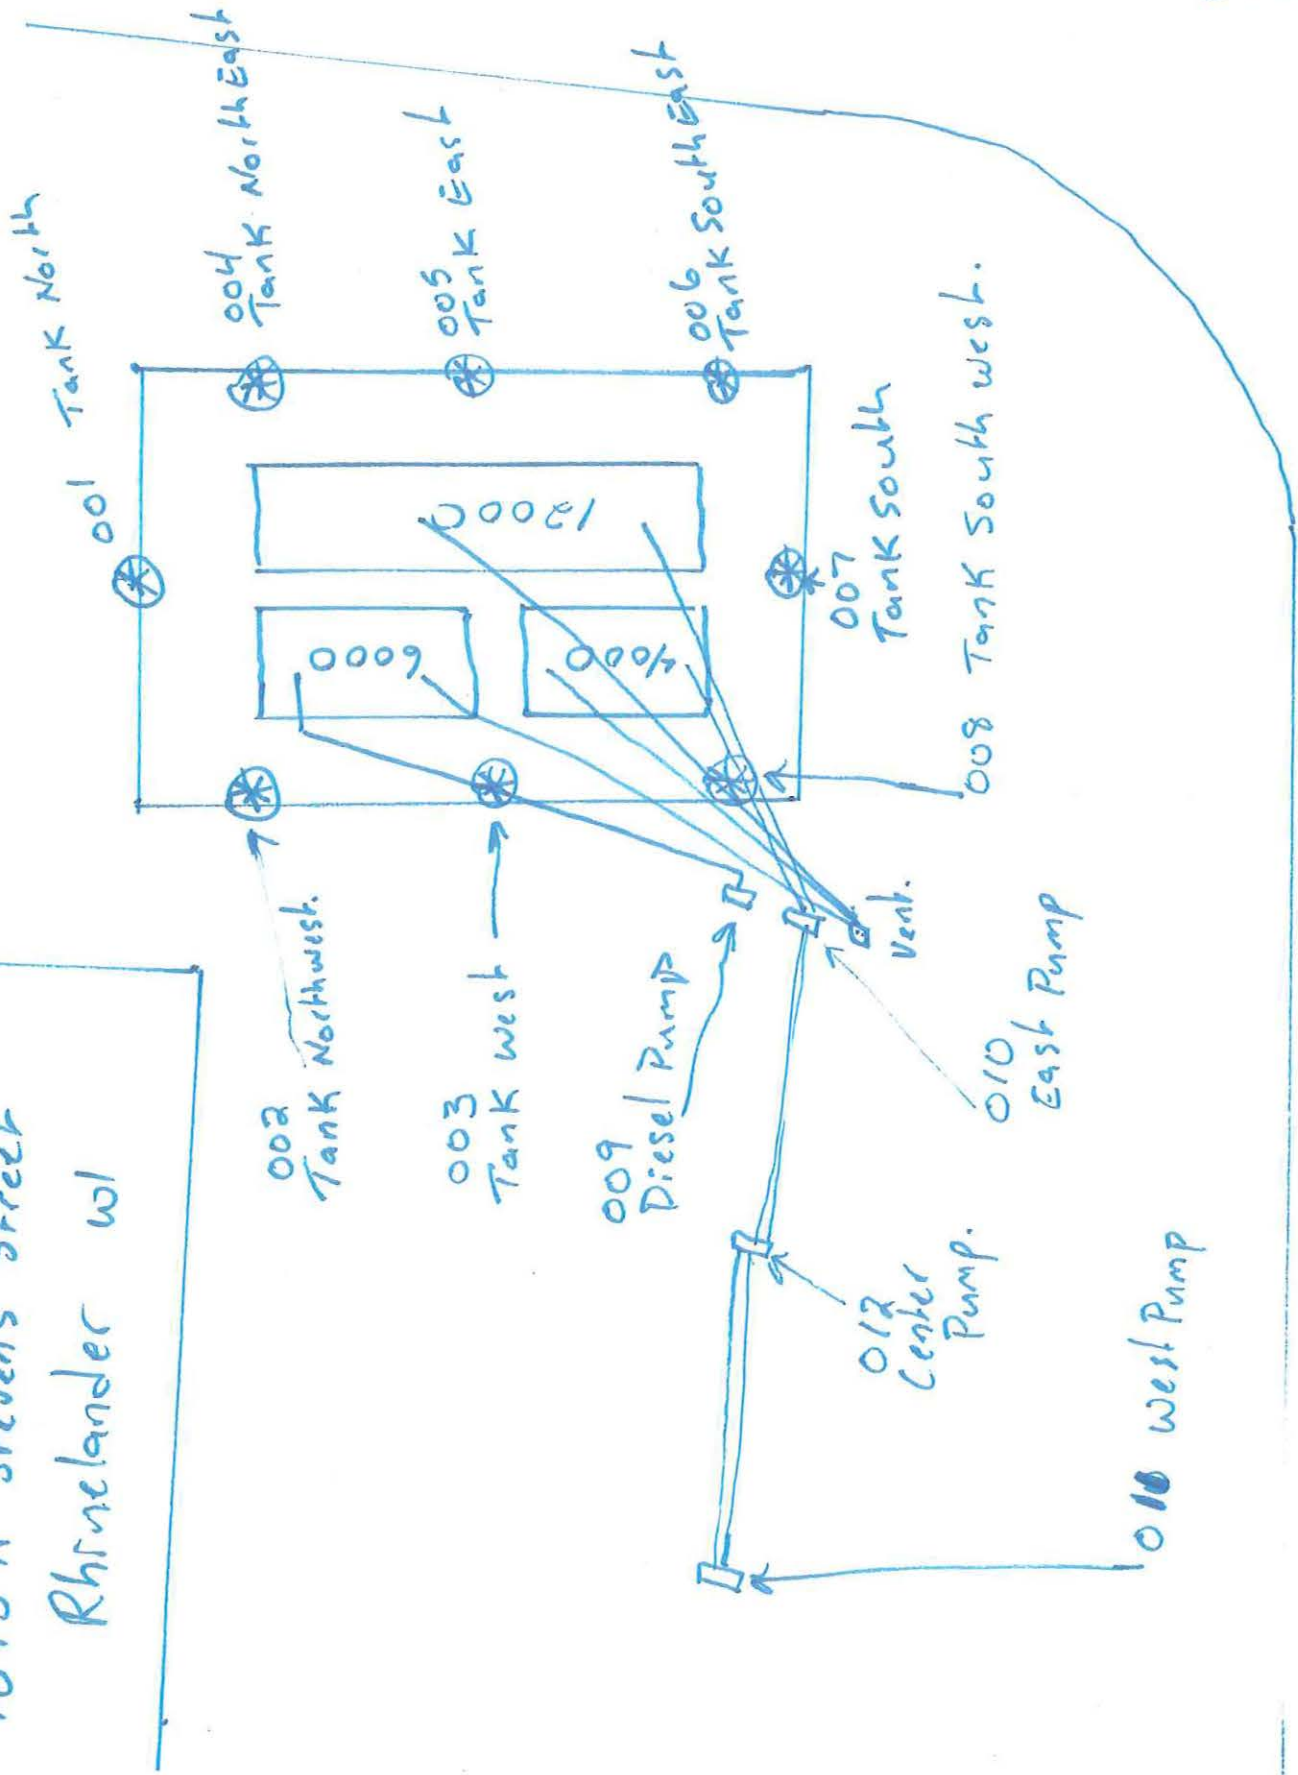 Stevens Street
Rhinelander WI
001 Tank North
002
Tank Northwest.
003
Tank West
004
Tank NorthEast
005
Tank East
006
Tank SouthEast
007
Tank South
008 Tank South west.
009
Diesel Pump
010
East Pump
Vent.
012
Center
Pump.
West Pump
6000
4000
12000